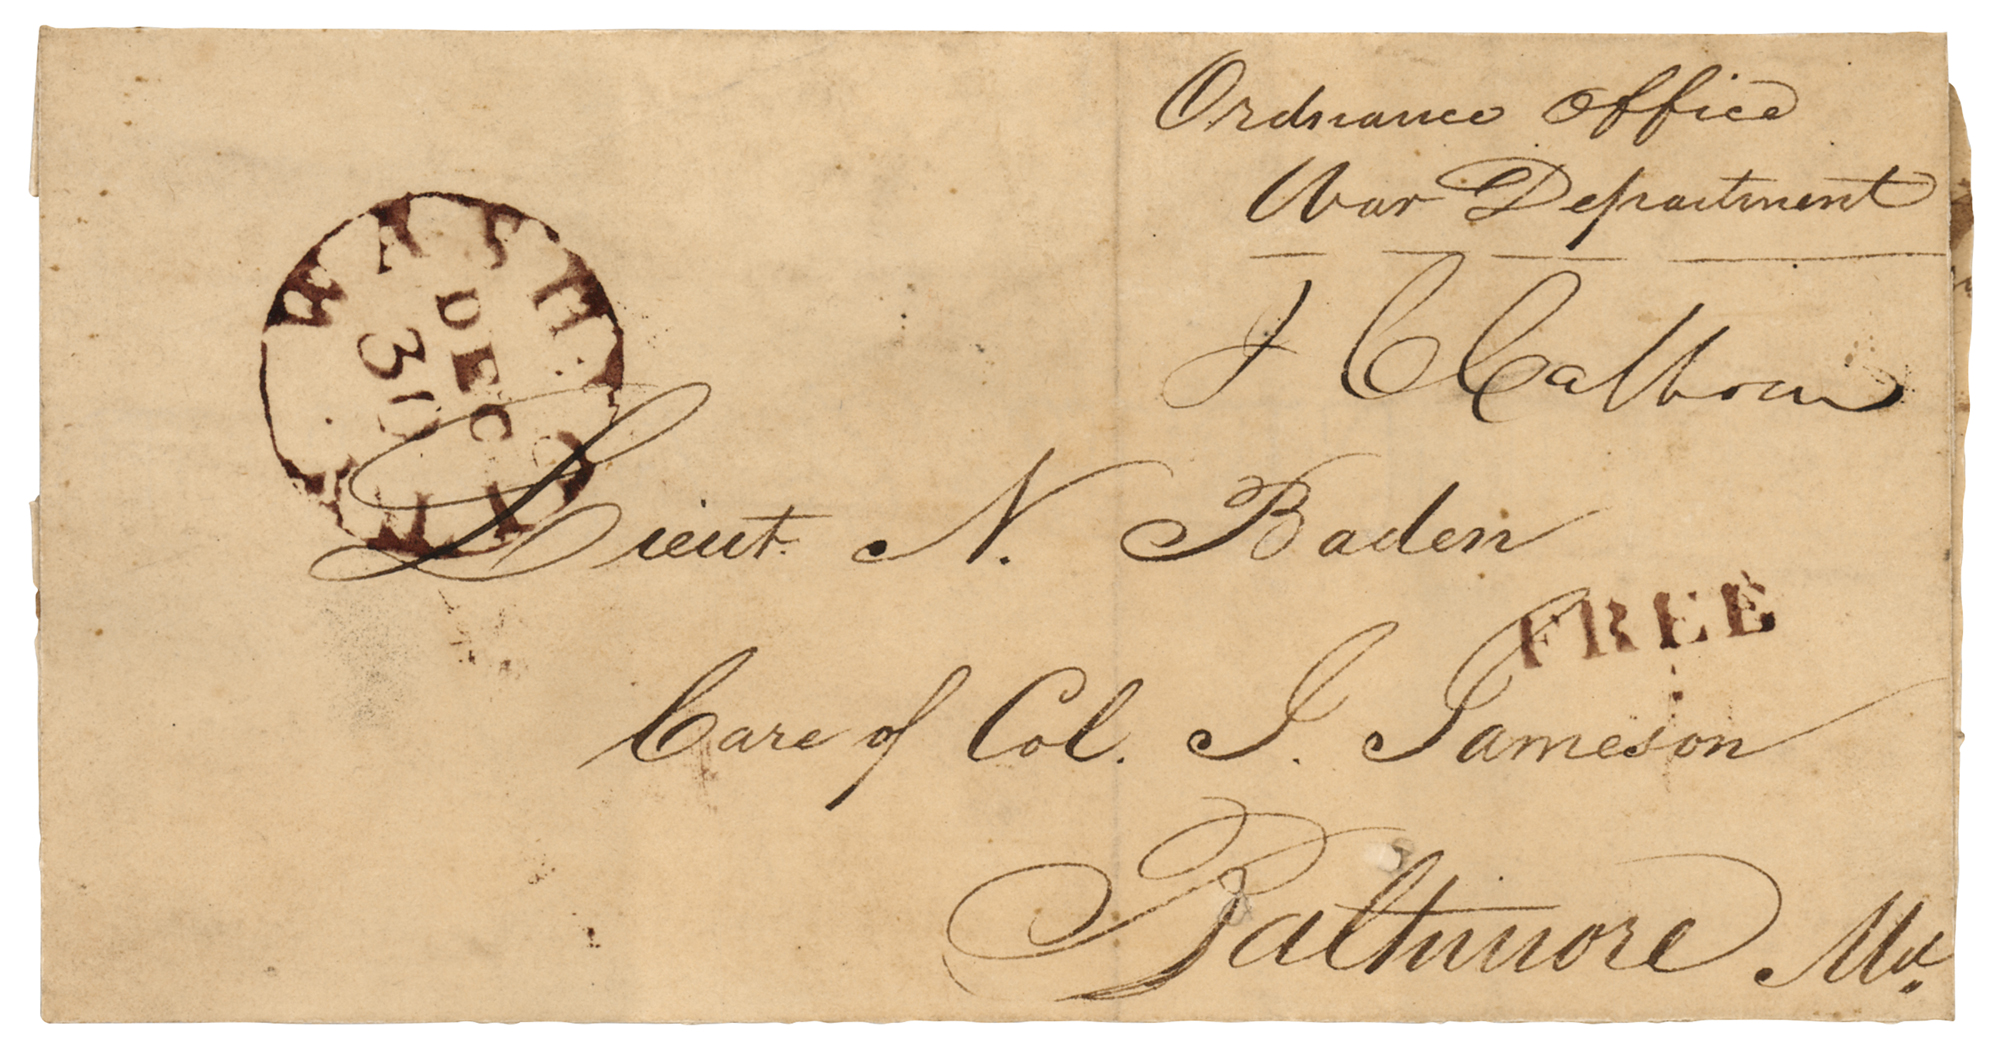 Ordnance Office
War Department
J C Calhoun
WASHn
DEC
30
CITY
Lieut. N. Baden
FREE
Care of Col. J. Jameson
Baltimore Md.